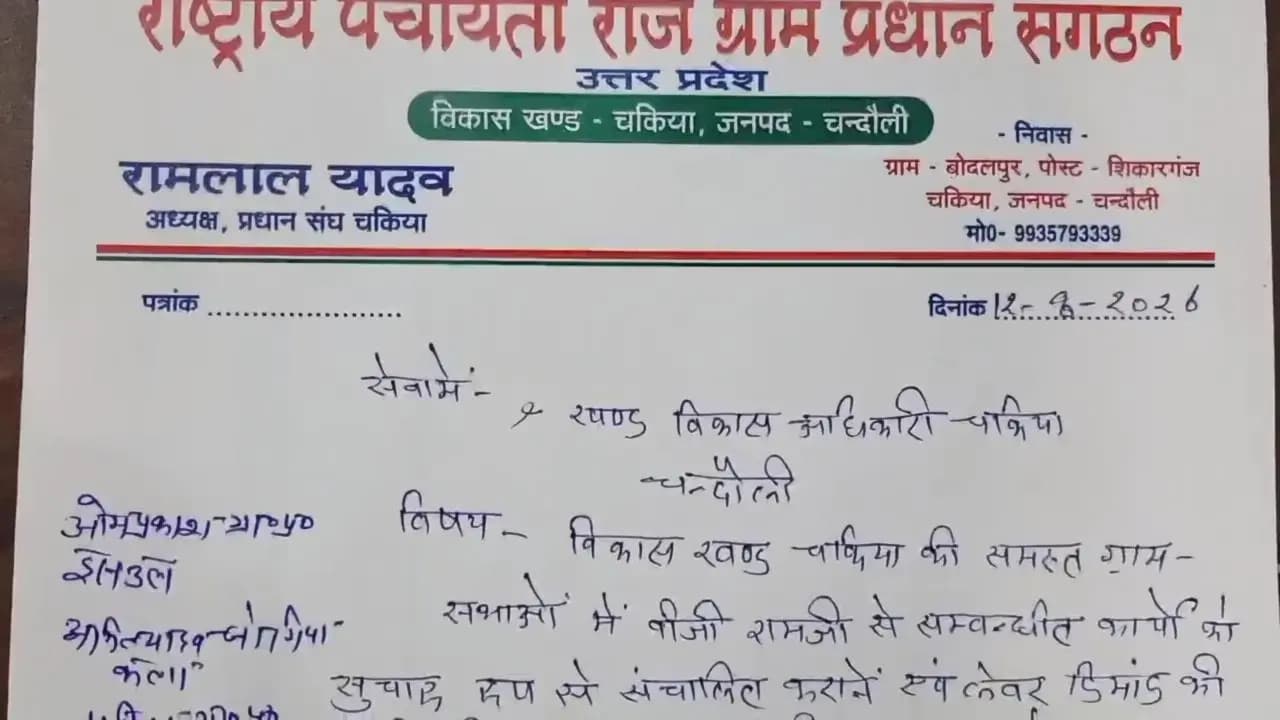 राष्ट्रीय पंचायती राज ग्राम प्रधान संगठन
उत्तर प्रदेश
विकास खण्ड - चकिया, जनपद - चन्दौली
- निवास -
ग्राम - बोदलपुर, पोस्ट - शिकारगंज
चकिया, जनपद - चन्दौली
मो0- 9935793339
रामलाल यादव
अध्यक्ष, प्रधान संघ चकिया
पत्रांक ......................
दिनांक 12- -2026
सेवामें -
खण्ड विकास अधिकारी चकिया
चन्दौली
विषय - विकास खण्ड चकिया की समस्त ग्राम-
सभाओं में वीजी रामजी से सम्वन्धीत कार्यो को
सुचारु रुप से संचालित कराने एंव लेवर डिमांड की
ओमप्रकाश ग्रा०प्र०
कला